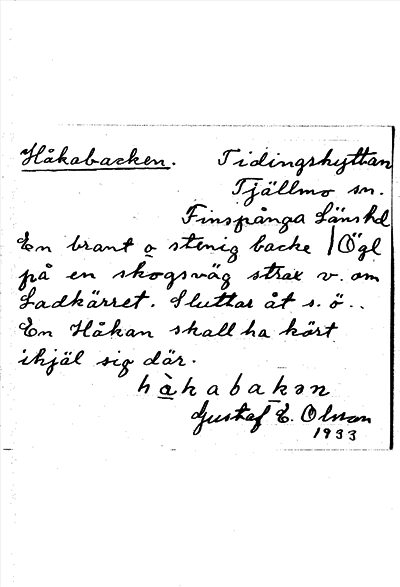 Håkabacken. Tidingshyttan
Tjällmo sn.
Finspånga Länshd
En brant o stenig backe | Ögl
på en skogsväg strax v. om
Ladkärret. Sluttar åt s. ö..
En Håkan skall ha kört
ihjäl sig där.
hàkabakən
Gustaf E. Olsson
1933